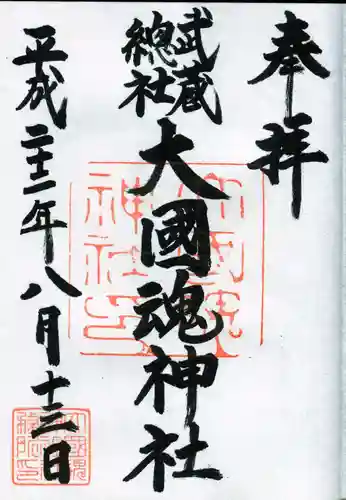 奉拝
武蔵
總社
大國魂神社
平成二十二年八月十三日